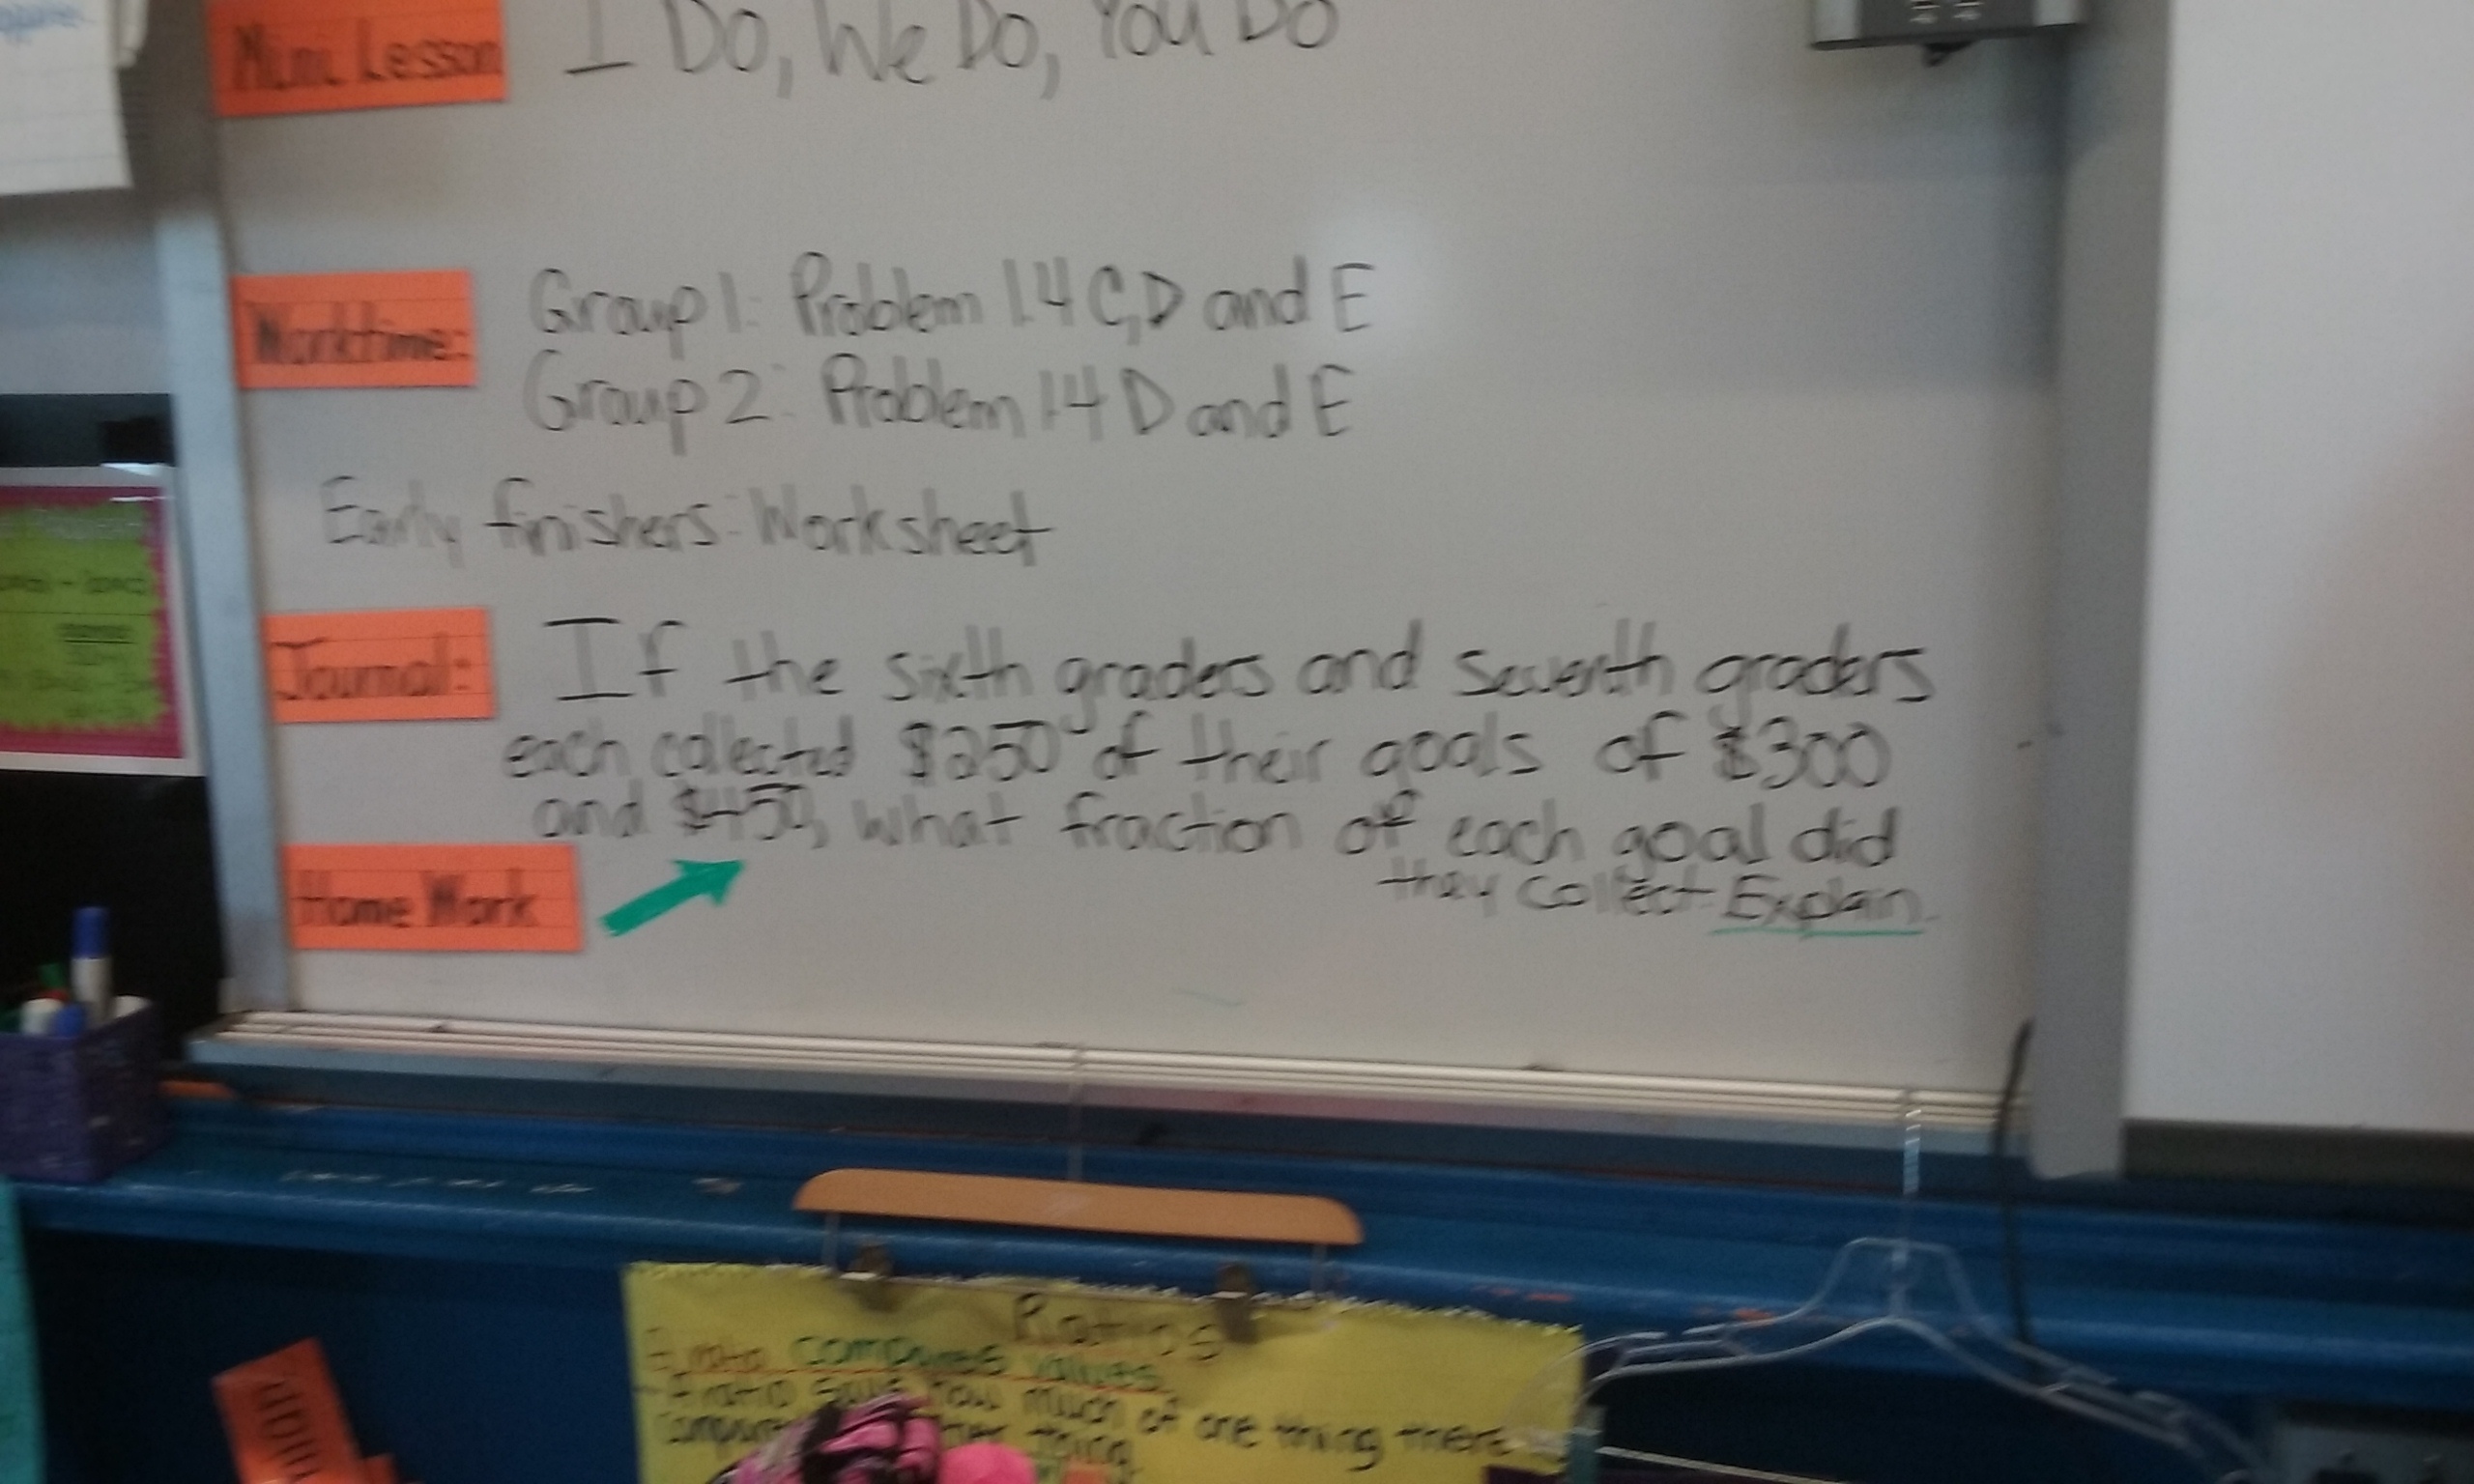 Mini Lesson I Do, We Do, You Do
Worktime: Group 1: Problem 1.4 C, D and E
Group 2: Problem 1.4 D and E
Early finishers: Worksheet
Journal: If the sixth graders and seventh graders
each collected $250 of their goals of $300
and $450, what fraction of each goal did
they collect. Explain.
Home Work
Ratios
A ratio compares values.
- A ratio says how much of one thing there
thing